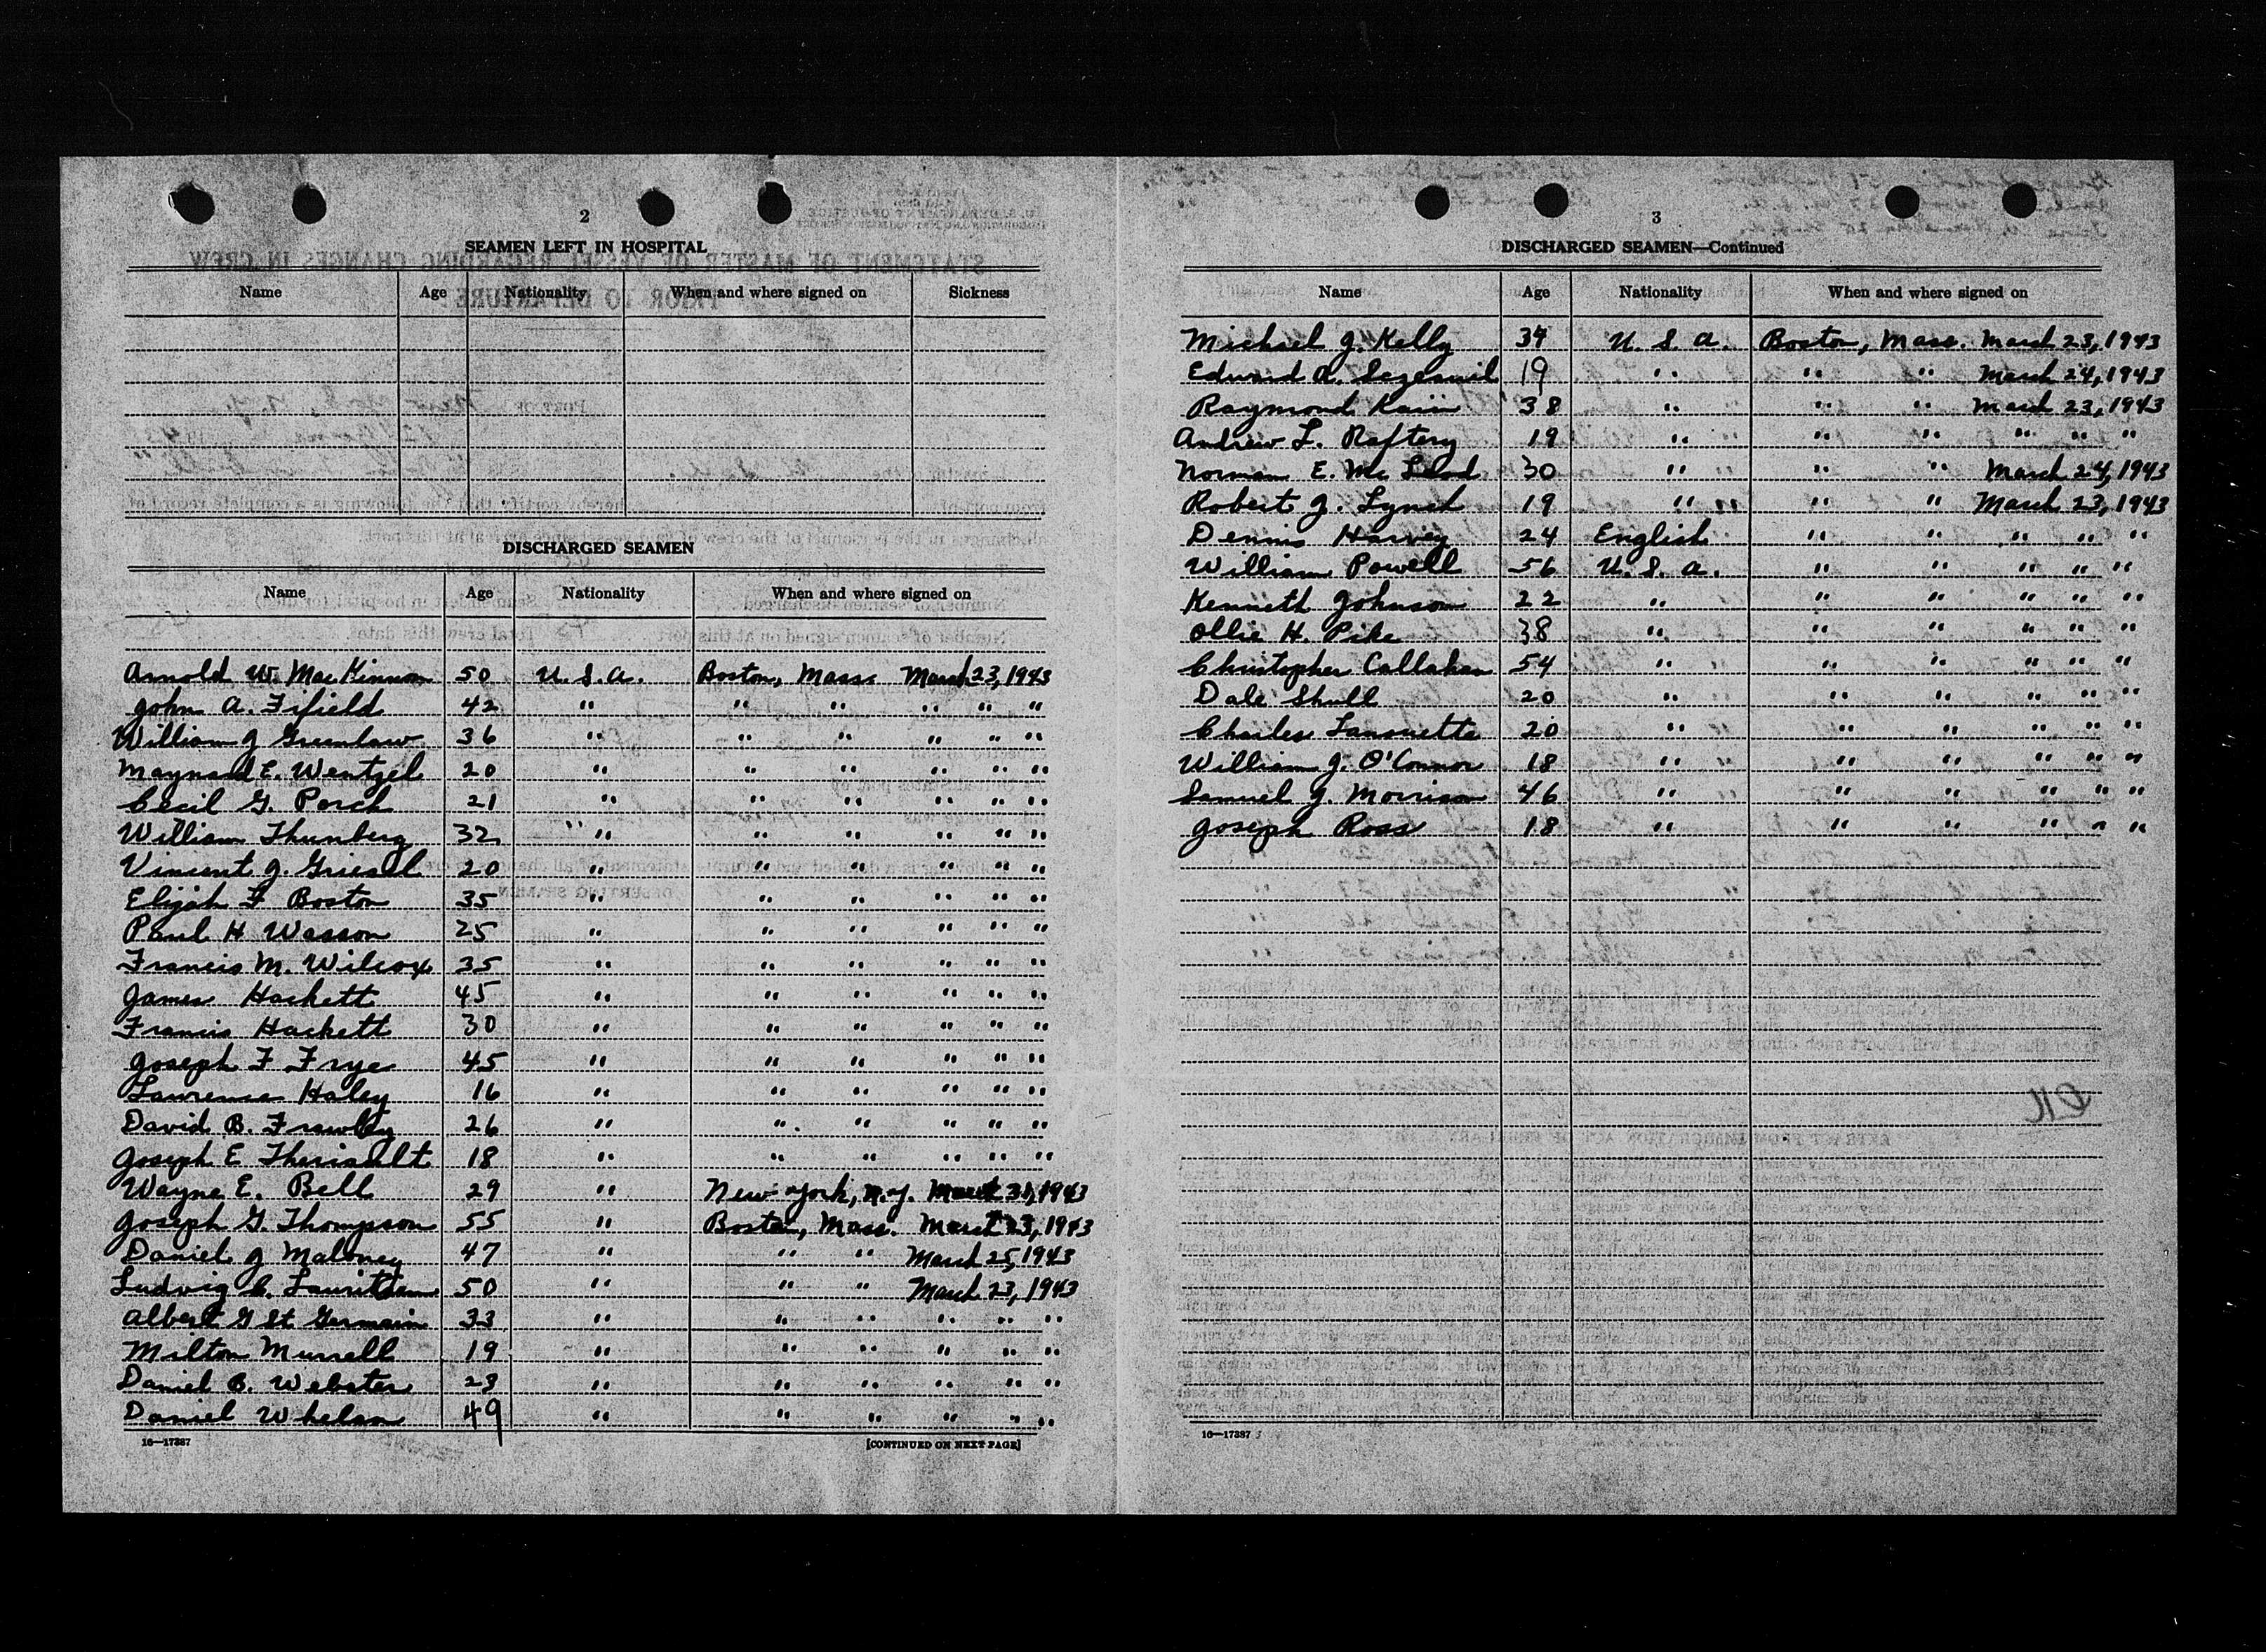 2
SEAMEN LEFT IN HOSPITAL
Name Age Nationality When and where signed on Sickness
DISCHARGED SEAMEN
Name Age Nationality When and where signed on
Arnold W. MacKinnon 50 U. S. A. Boston, Mass. March 23, 1943
John A. Fifield 42 " " " " " "
William J Greenlaw 36 " " " " " "
Maynard E. Wentzel 20 " " " " " "
Cecil G. Porch 21 " " " " " "
William Thunberg 32 " " " " " "
Vincent J. Griesel 20 " " " " " "
Elijah F Boston 35 " " " " " "
Paul H Wasson 25 " " " " " "
Francis M. Wilcox 35 " " " " " "
James Hackett 45 " " " " " "
Francis Hackett 30 " " " " " "
Joseph F Frye 45 " " " " " "
Lawrence Haley 16 " " " " " "
David B. Frawley 26 " " " " " "
Joseph E Theriault 18 " " " " " "
Wayne E. Bell 29 " New York, N.Y. March 31, 1943
Joseph G. Thompson 55 " Boston, Mass. March 23, 1943
Daniel J Maloney 47 " " " March 25, 1943
Ludwig C. Lauritsen 50 " " " March 23, 1943
Albert G St Germain 33 " " " " " "
Milton Murrell 19 " " " " " "
Daniel B. Webster 23 " " " " " "
Daniel Whelan 49 " " " " " "
16—17387
[CONTINUED ON NEXT PAGE]
3
DISCHARGED SEAMEN—Continued
Name Age Nationality When and where signed on
Michael J. Kelly 34 U. S. A. Boston, Mass. March 23, 1943
Edward A. 19 " " " March 24, 1943
Raymond 38 " " " March 23, 1943
Andrew L. Raftery 19 " " " " " "
Norman E. McLeod 30 " " " March 24, 1943
Robert J. Lynch 19 " " " March 23, 1943
Dennis Harvey 24 English " " " " "
William Powell 56 U. S. A. " " " " "
Kenneth Johnson 22 " " " " " "
Ollie H. Pike 38 " " " " " "
Christopher Callahan 54 " " " " " "
Dale Shull 20 " " " " " "
Charles 20 " " " " " "
William J. O'Connor 18 " " " " " "
Samuel J. Morrison 46 " " " " " "
Joseph Ross 18 " " " " " "
16—17387